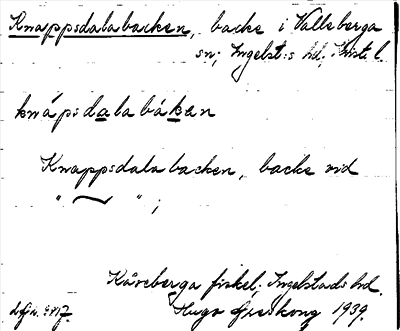 Knappsdalabacken, backe i Valleberga
sn; Ingelst:s hd; Krist. l.
knápsdalabáken
Knappsdalabacken, backe vid
" — " ;
Kåseberga fiskel; Ingelstads hd.
Hugo Areskoug 1939.